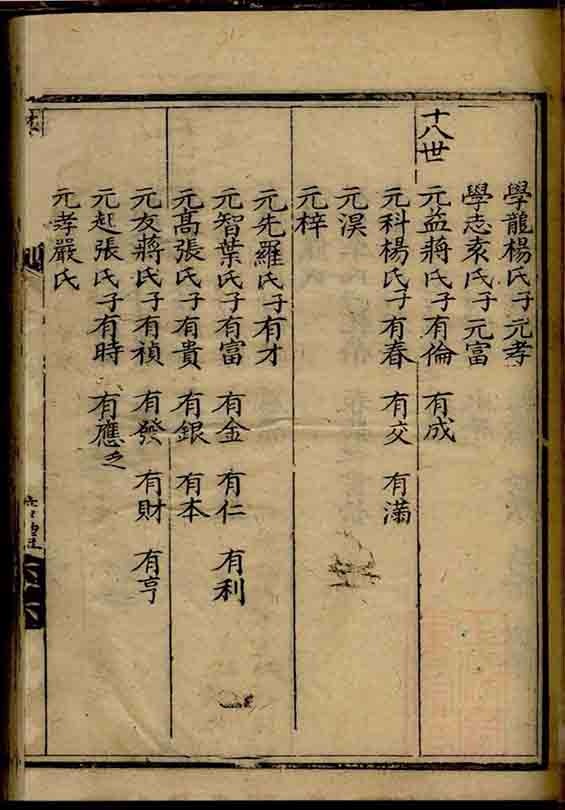 學龍楊氏子元孝
學志袁氏子元富
十八世
元益蔣氏子有倫 有成
元科楊氏子有春 有交 有滿
元淏
元梓
元先羅氏子有才
元智葉氏子有富 有金 有仁 有利
元高張氏子有貴 有銀 有本
元友蔣氏子有禎 有發 有財 有亨
元起張氏子有時 有應
元孝嚴氏